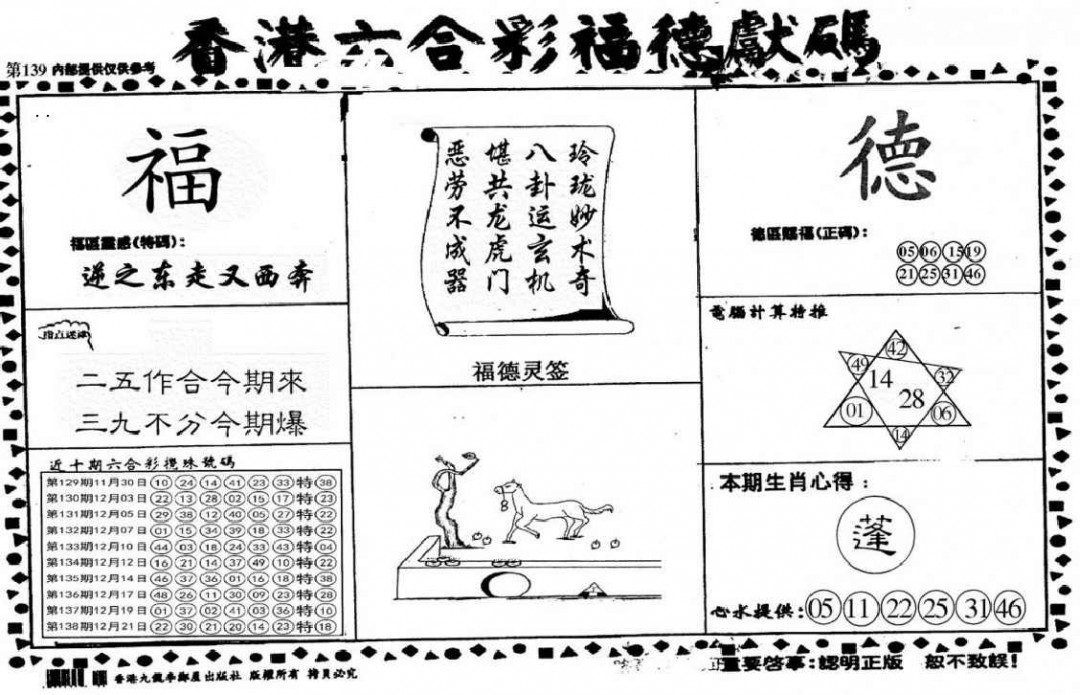 香港六合彩福德獻碼
第139 内部提供仅供参考
福
福區靈感(特碼):
逆之东走又西奔
指点迷津
二五作合今期來
三九不分今期爆
近十期六合彩攪珠號碼
第129期11月30日 10 24 14 41 23 33 特 38
第130期12月03日 22 13 28 02 15 17 特 23
第131期12月05日 29 38 12 40 05 27 特 22
第132期12月07日 01 15 34 39 18 33 特 22
第133期12月10日 44 03 18 24 33 43 特 04
第134期12月12日 16 21 14 37 49 10 特 22
第135期12月14日 46 37 36 01 16 18 特 38
第136期12月17日 48 26 11 30 09 23 特 28
第137期12月19日 01 37 02 41 03 36 特 10
第138期12月21日 22 30 21 20 14 23 特 18
玲珑妙术奇
八卦运玄机
堪共龙虎门
恶劳不成器
福德灵签
德
德區賜福(正碼):
05 06 15 19
21 25 31 46
電腦計算特推
42
49 32
14
28
01 06
14
本期生肖心得:
蓬
心水提供: 05 11 22 25 31 46
香港九龍李鄭屋出版社 版權所有 拷貝必究
重要啓事:認明正版 恕不致誤!